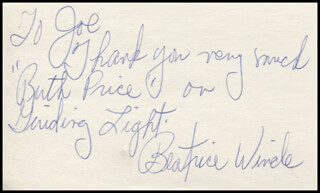 To Joe
Thank you very much
"Ruth Price" on
Guiding Light.
Beatrice Winde